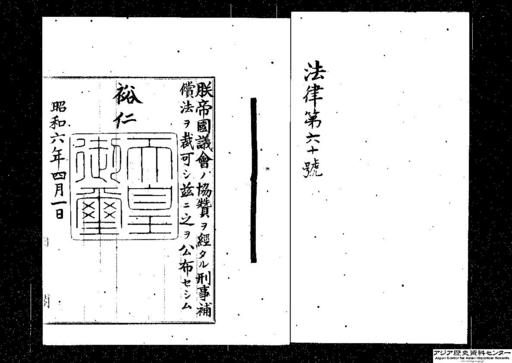 法律第六十號
朕帝國議會ノ協贊ヲ經タル刑事補
償法ヲ裁可シ茲ニ之ヲ公布セシム
裕仁
天皇
御璽
昭和六年四月一日
アジア歴史資料センター
Japan Center for Asian Historical Records